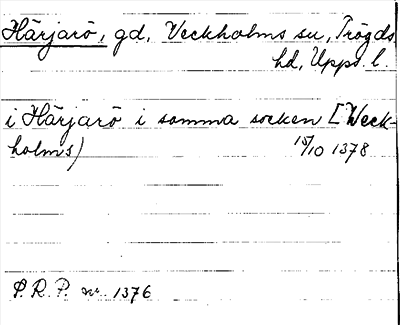 Härjarö, gd, Veckholms sn, Trögds
hd, Upps. l.
i Härjarö i samma socken [Weck-
holms) 15/10 1378
S. R. P. nr. 1376